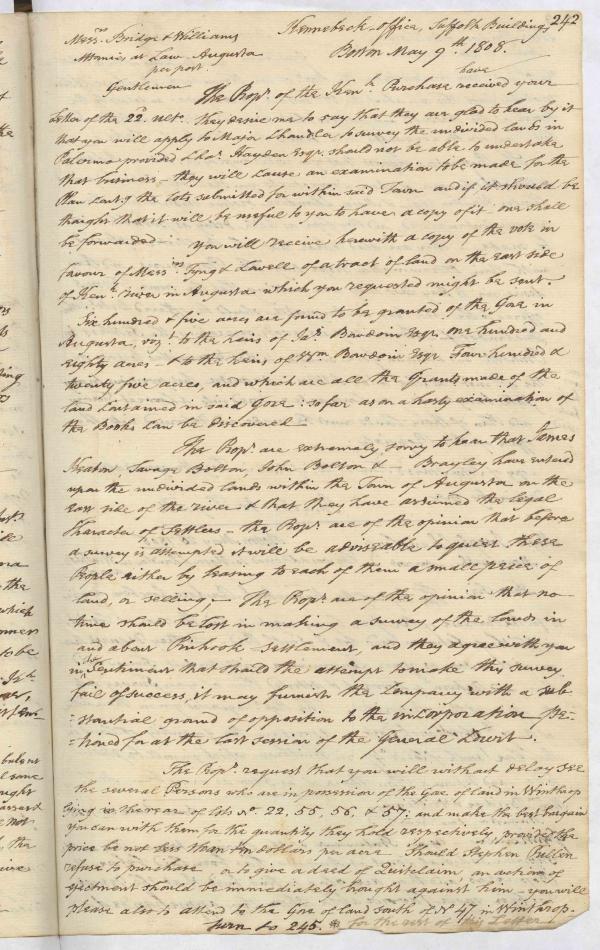 242
Kennebeck Office, Suffolk Buildings
Messrs. Bridge & Williams
Attornies at Law Augusta
Boston May 9th. 1808.
per post
Gentlemen
have
The Propr. of the Kenk. Purchase received your
Letter of the 22n. ulto. They desire me to say that they are glad to hear by it
that you will apply to Major Chandler to survey the undivided lands in
Palermo provided Chas. Hayden Esqr. should not be able to undertake
that business - they will cause an examination to be made for the
Plan contg. the lots submitted for within said Town and if it should be
thought that it will be useful to you to have a copy of it one shall
be forwarded you will receive herewith a copy of the vote in
favour of Messrs Tyng & Lowell of a tract of land on the east side
of Kenk. river in Augusta which you requested might be sent.
Six hundred & five acres are found to be granted of the Gore in
Augusta, vizt. to the heirs of Jas. Bowdoin Esqr. one hundred and
eighty acres - & to the heirs of Wm Bowdoin Esqr. Four hundred &
twenty five acres, and which are all the Grants made of the
land contained in said Gore: so far as on a hasty examination of
the Books can be discovered
The Propr. are extremely sorry to hear that James
Neaton, Savage Bolton, John Bolton & - Brayley have entered
upon the undivided lands within the Town of Augusta on the
East side of the river & that they have assumed the legal
Character of Settlers - the Propr. are of the opinion that before
a survey is attempted it will be adviseable to quiet these
People either by leasing to each of them a small peice of
land, or selling, - The Propr. are of the opinion that no
time should be lost in making a survey of the lands in
and about Pinhook settlement, and they agree with you
in the Sentiment that should the attempt to make this survey
fail of success, it may furnish the Company with a sub-
-stantial ground of opposition to the incorporation Pe-
-tioned for at the last session of the General Court.
The Propr. request that you will without delay see
the several Persons who are in possession of the Gore of land in Winthrop
lying in the rear of lots No. 22, 55, 56, & 57: and make the best bargain
you can with them for the quantity they hold respectively, provided the
price be not less than ten dollars per acre Should Stephen Pullen
refuse to purchase or to give a deed of Quitclaim an action of
ejectment should be immediately brought against him - you will
please also to attend to the Gore of land south of No 47 in Winthrop.
turn to 245. for the rest of this Letter